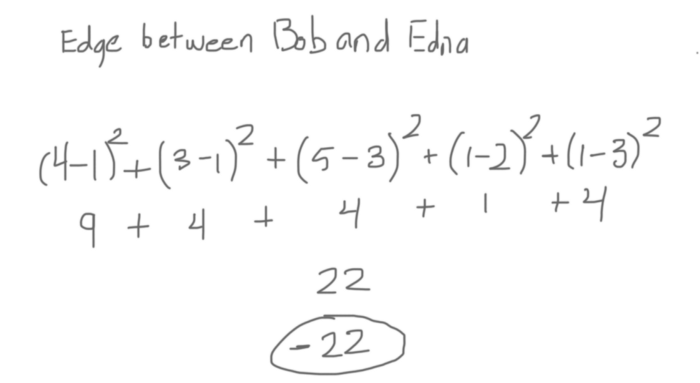 Edge between Bob and Edna
(4-1)² + (3-1)² + (5-3)² + (1-2)² + (1-3)²
9 + 4 + 4 + 1 + 4
22
-22